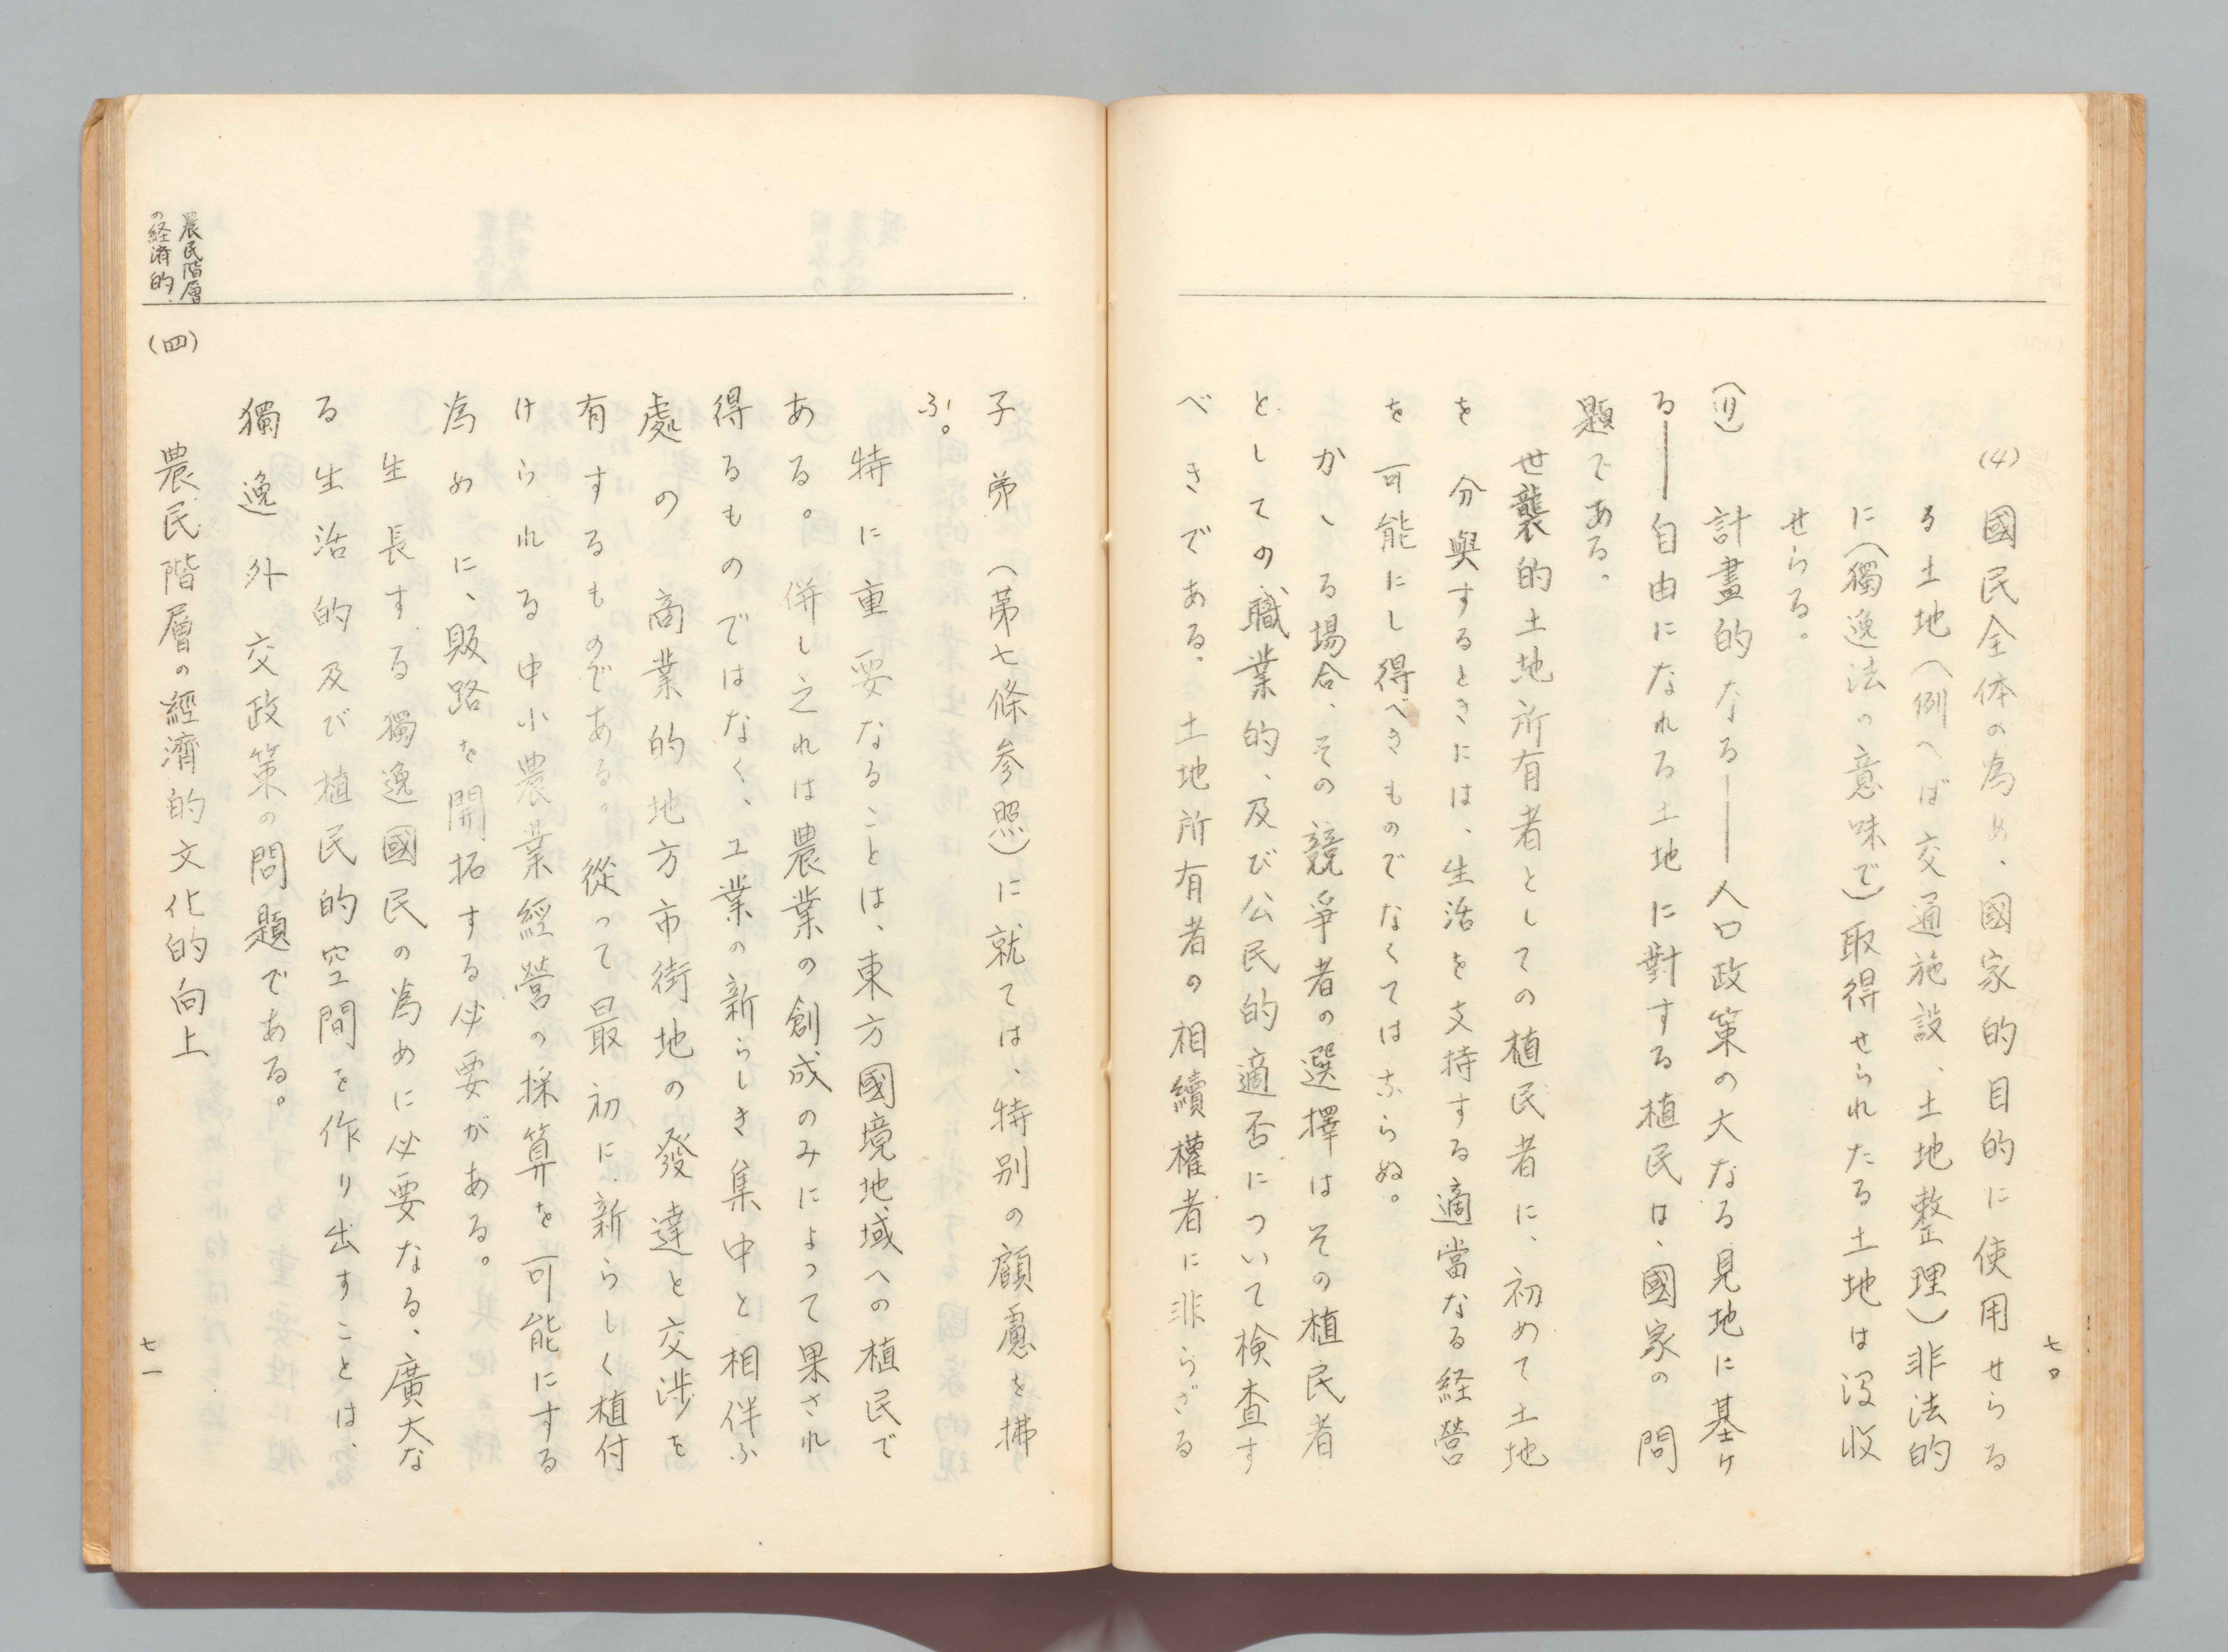 七〇
(4) 國民全体の為め、國家的目的に使用せらる
る土地(例へば交通施設、土地整理)非法的
に(獨逸法の意味で)取得せられたる土地は沒收
せらる。
計畫的なる——人口政策の大なる見地に基け
る——自由になれる土地に對する植民は、國家の問
題である。
世襲的土地所有者としての植民者に、初めて土地
を分與するときには、生活を支持する適當なる経營
を可能にし得べきものでなくてはならぬ。
かゝる場合、その競爭者の選擇はその植民者
としての職業的、及び公民的適否について検査す
べきである。土地所有者の相續權者に非らざる
子弟(第七條参照)に就ては、特別の顧慮を拂
ふ。
特に重要なることは、東方國境地域への植民で
ある。併し之れは農業の創成のみによって果され
得るものではなく、工業の新らしき集中と相伴ふ
處の商業的地方市街地の發達と交涉を
有するものである。從って最初に新らしく植付
けられる中小農業經營の採算を可能にする
為めに、販路を開拓する必要がある。
生長する獨逸國民の為めに必要なる、廣大な
る生活的及び植民的空間を作り出すことは、
獨逸外交政策の問題である。
農民階層
の経済的
(四) 農民階層の經濟的文化的向上
七一